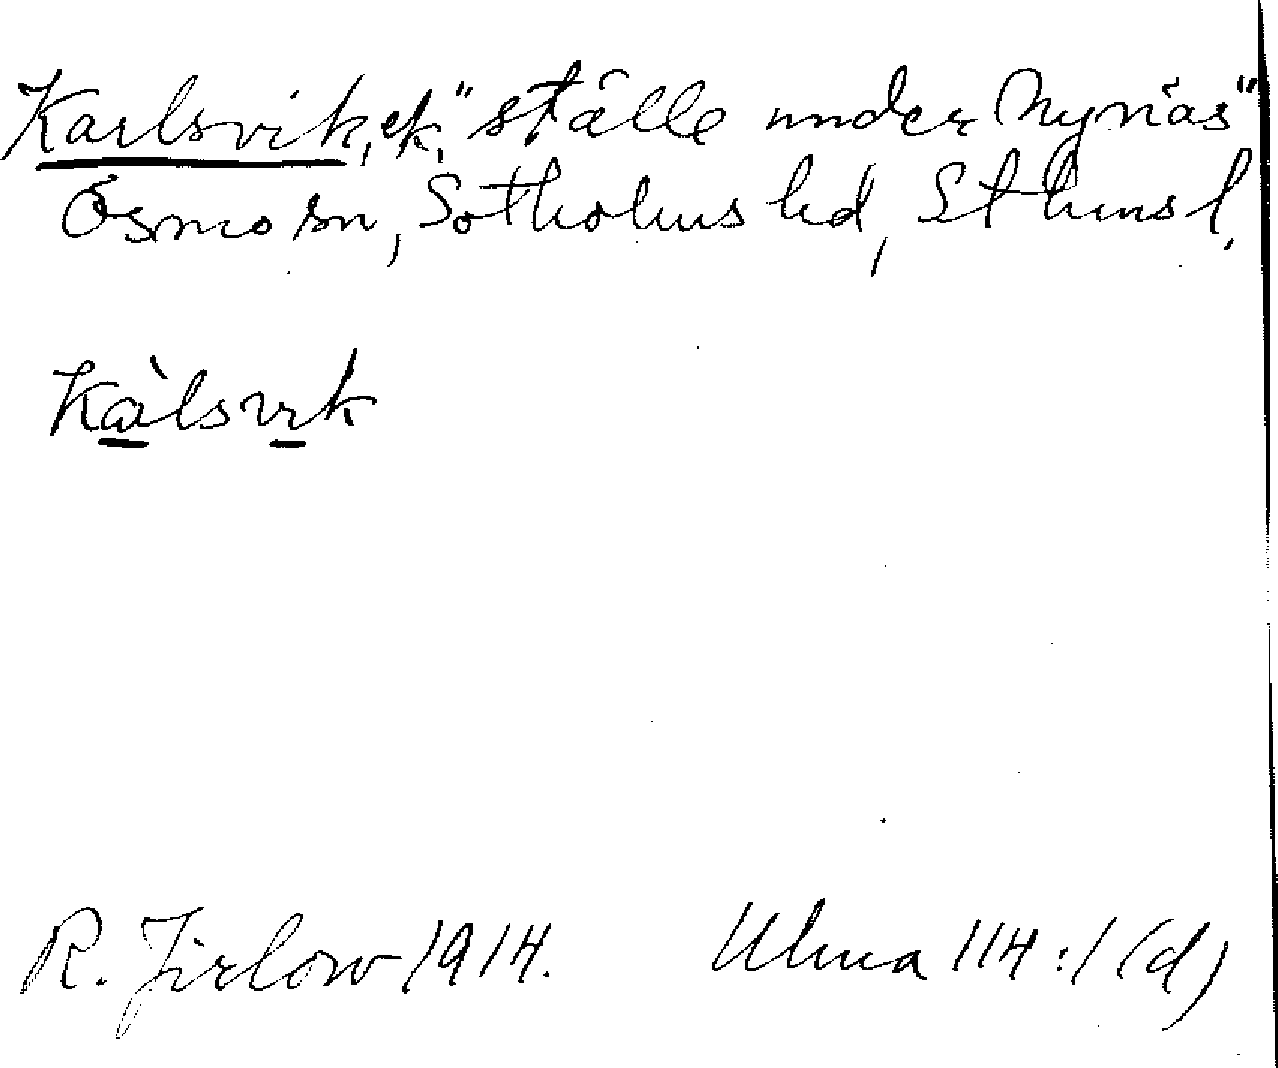 Karlsvik, ek, "ställe under Nynäs"
Ösmo sn, Sotholms hd, Sthms l.
Kàlsvik
R. Jirlow 1914. Ulma 114:1 (d)